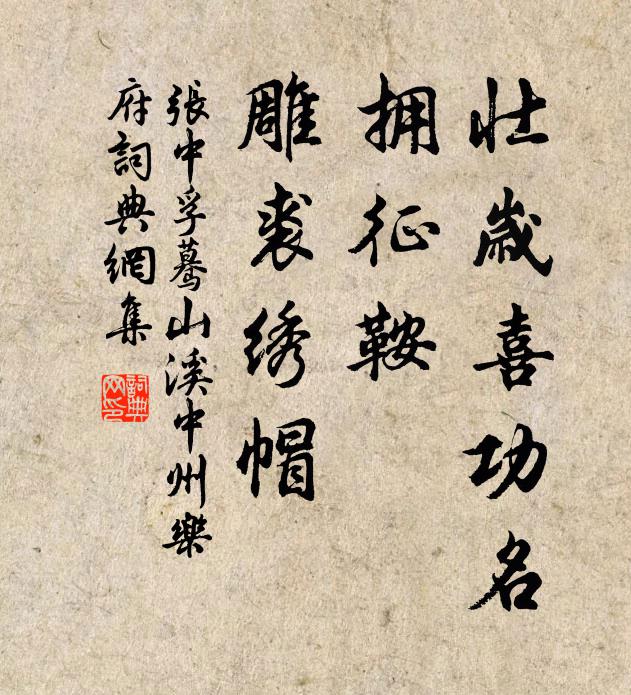 壮岁喜功名
拥征鞍
雕裘绣帽
張中孚蓦山溪中州樂
府詞典網集
詞典网印